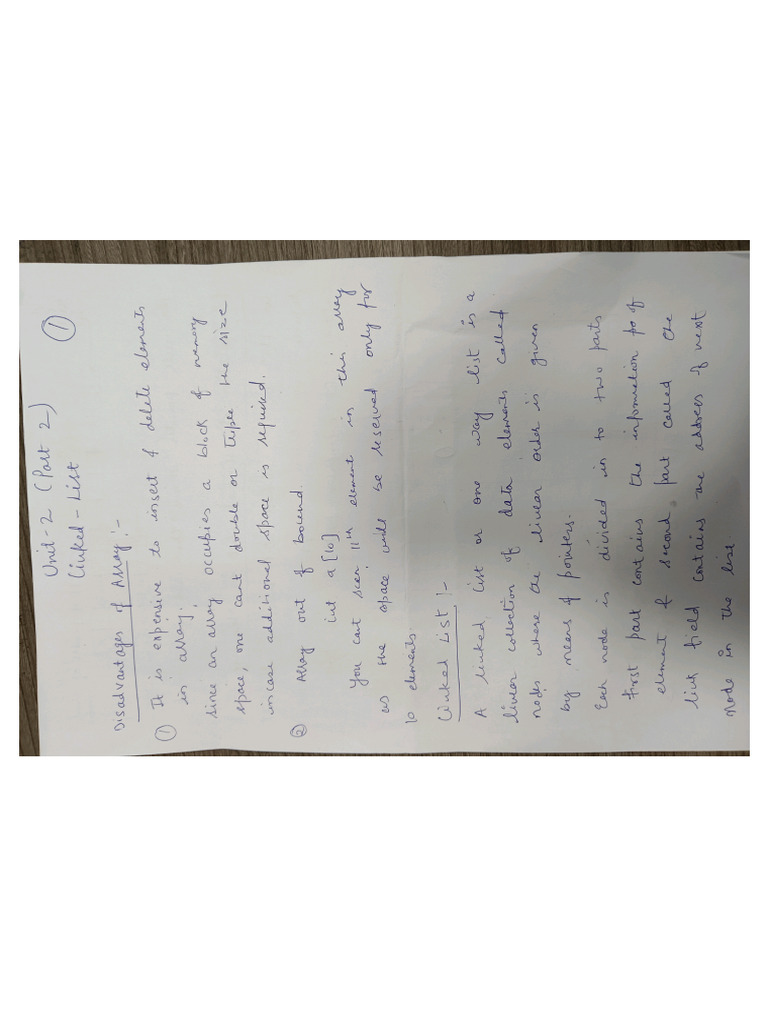 ①
Unit-2 (Part 2)
Linked-List
Disadvantages of Array:-
① It is expensive to insert & delete elements
in array.
since an array occupies a block of memory
space, one cant double or triple the size
incase additional space is required.
② Array out of bound.
int a[10]
You cant scan 11th element in this array
as the space will be reserved only for
10 elements.
Linked List:-
A linked list or one way list is a
linear collection of data elements called
nodes where the linear order is given
by means of pointers.
Each node is divided in to two parts
First part contains the information of
element & second part called the
link field contains address of next
node in the list